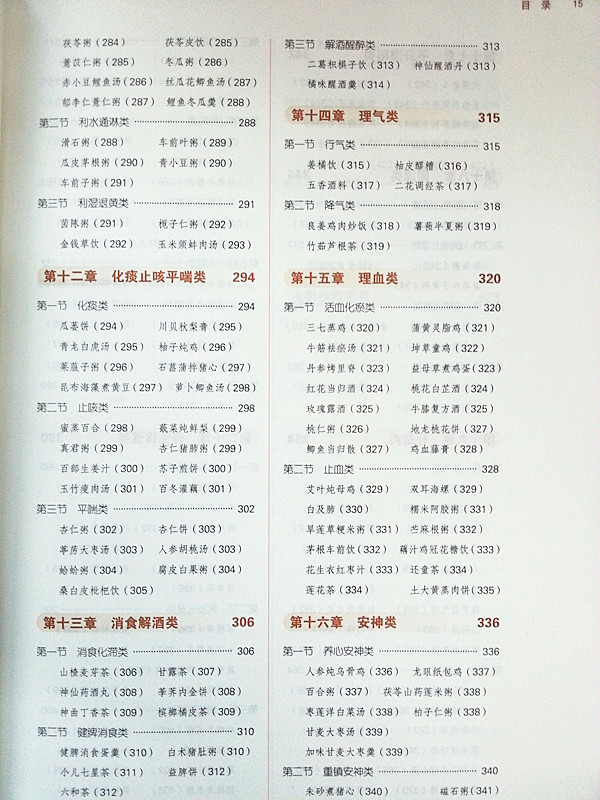 目 录 15
茯苓粥（284） 茯苓皮饮（285）
薏苡仁粥（285） 冬瓜粥（286）
赤小豆鲤鱼汤（286） 丝瓜花鲫鱼汤（287）
郁李仁薏仁粥（287） 鲤鱼冬瓜羹（288）
第二节 利水通淋类 288
滑石粥（288） 车前叶粥（289）
瓜皮茅根粥（290） 青小豆粥（290）
车前子粥（291）
第三节 利湿退黄类 291
茵陈粥（291） 栀子仁粥（292）
金钱草饮（292） 玉米须蚌肉汤（293）
第十二章 化痰止咳平喘类 294
第一节 化痰类 294
瓜蒌饼（294） 川贝秋梨膏（295）
青龙白虎汤（295） 柚子炖鸡（296）
莱菔子粥（296） 石菖蒲拌猪心（297）
昆布海藻煮黄豆（297） 萝卜鲫鱼汤（298）
第二节 止咳类 298
蜜蒸百合（298） 蕺菜炖鲜梨（299）
真君粥（299） 杏仁猪肺粥（299）
百部生姜汁（300） 苏子煎饼（300）
玉竹瘦肉汤（301） 百冬灌藕（301）
第三节 平喘类 302
杏仁粥（302） 杏仁饼（303）
葶苈大枣汤（303） 人参胡桃汤（303）
蛤蚧粥（304） 腐皮白果粥（304）
桑白皮枇杷饮（305）
第十三章 消食解酒类 306
第一节 消食化滞类 306
山楂麦芽茶（306） 甘露茶（307）
神仙药酒丸（308） 荸荠内金饼（308）
神曲丁香茶（309） 槟榔橘皮茶（309）
第二节 健脾消食类 310
健脾消食蛋羹（310） 白术猪肚粥（310）
小儿七星茶（311） 益脾饼（312）
六和茶（312）
第三节 解酒醒醉类 313
二葛枳椇子饮（313） 神仙醒酒丹（313）
橘味醒酒羹（314）
第十四章 理气类 315
第一节 行气类 315
姜橘饮（315） 柚皮醪糟（316）
五香酒料（317） 二花调经茶（317）
第二节 降气类 318
良姜鸡肉炒饭（318） 薯蓣半夏粥（319）
竹茹芦根茶（319）
第十五章 理血类 320
第一节 活血化瘀类 320
三七蒸鸡（320） 蒲黄灵脂鸡（321）
牛筋祛瘀汤（321） 坤草童鸡（322）
丹参烤里脊（323） 益母草煮鸡蛋（323）
红花当归酒（324） 桃花白芷酒（324）
玫瑰露酒（325） 牛膝复方酒（325）
桃仁粥（326） 地龙桃花饼（327）
鲫鱼当归散（327） 鸡血藤膏（328）
第二节 止血类 328
艾叶炖母鸡（329） 双耳海螺（329）
白及肺（330） 糯米阿胶粥（331）
旱莲草粳米粥（331） 苎麻根粥（332）
茅根车前饮（332） 藕汁鸡冠花糖饮（333）
花生衣红枣汁（333） 还童茶（334）
莲花茶（334） 土大黄蒸肉饼（335）
第十六章 安神类 336
第一节 养心安神类 336
人参炖乌骨鸡（336） 龙眼纸包鸡（337）
百合粥（337） 茯苓山药莲米粥（338）
枣莲洋白菜汤（338） 柏子仁粥（338）
甘麦大枣汤（339）
加味甘麦大枣羹（339）
第二节 重镇安神类 340
朱砂煮猪心（340） 磁石粥（341）